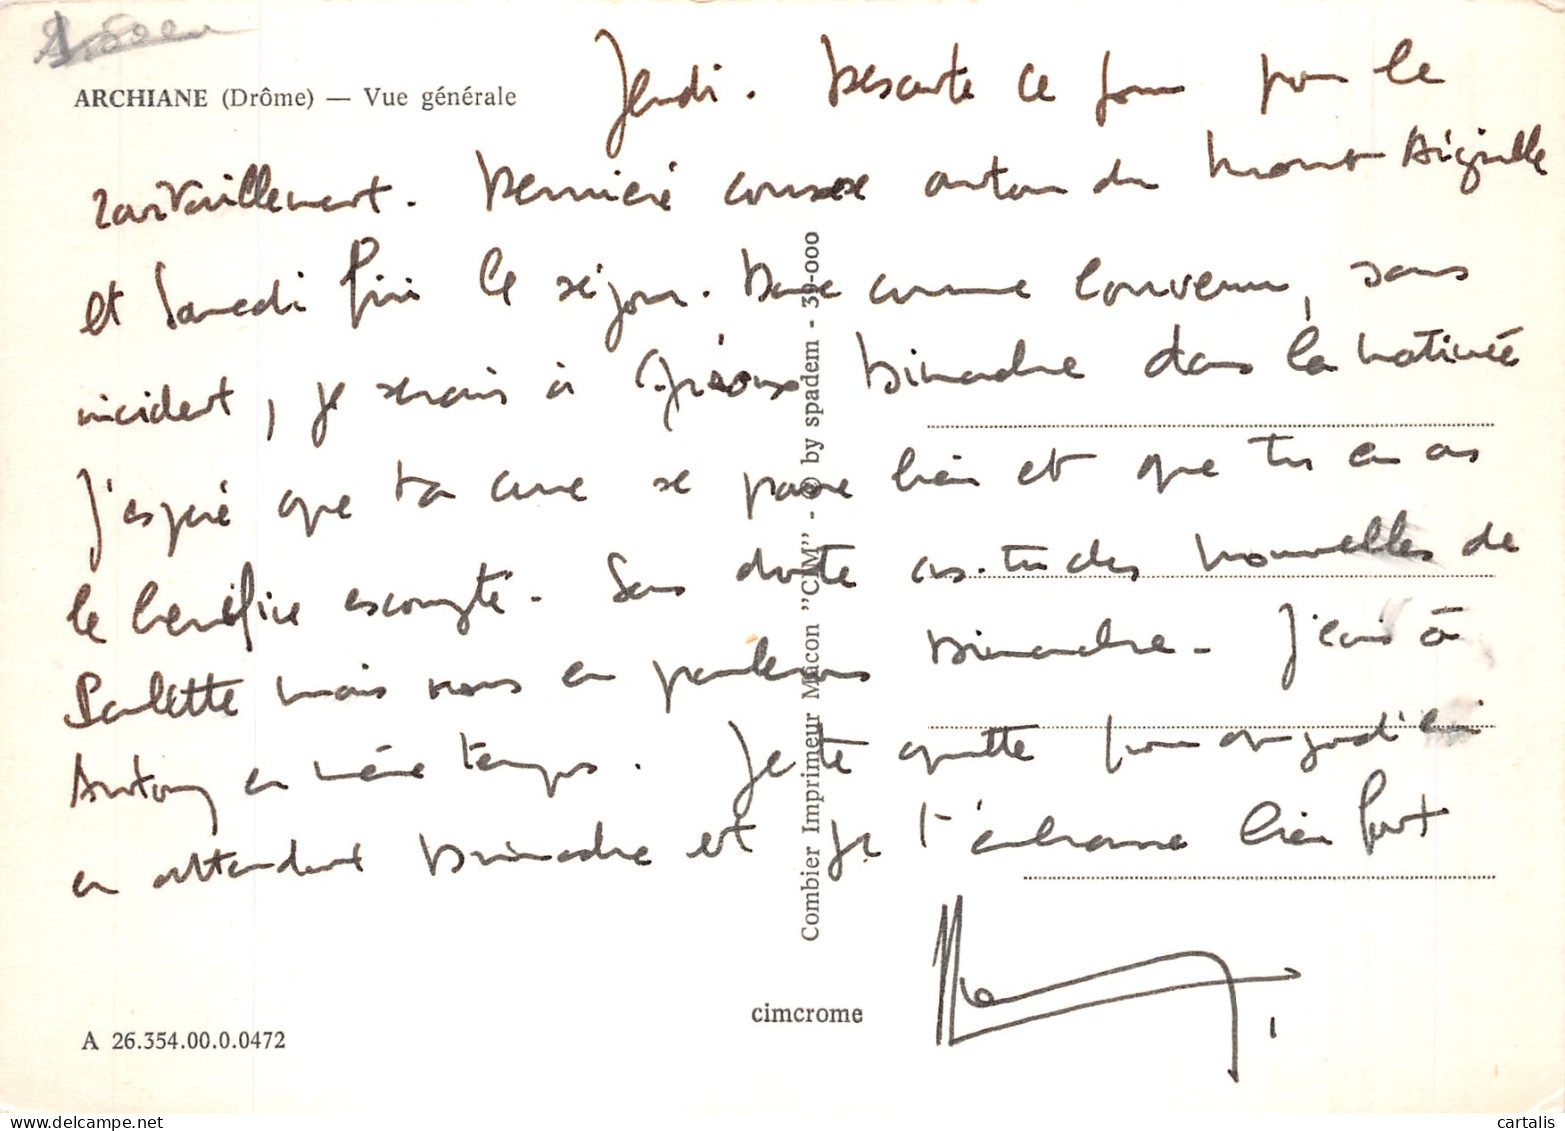 ARCHIANE (Drôme) — Vue générale
Jeudi. Descente ce jour pour le
ravitaillement. Dernière course autour du Mont Aiguille
et Samedi fini le séjour. Donc comme convenu, sans
incident, je serais à Gréoux Dimanche dans la matinée
J'espère que ta cure se passe bien et que tu en as
le bénéfice escompté. Sans doute as-tu des nouvelles de
Paulette mais nous en parlerons Dimanche. J'écris à
en même temps. Je te quitte pour aujourd'hui
en attendant Dimanche et je t'embrasse bien fort
Combier Imprimeur Mâcon "CIM" - © by spadem - 39-000
cimcrome
A 26.354.00.0.0472
cartalis
www.delcampe.net